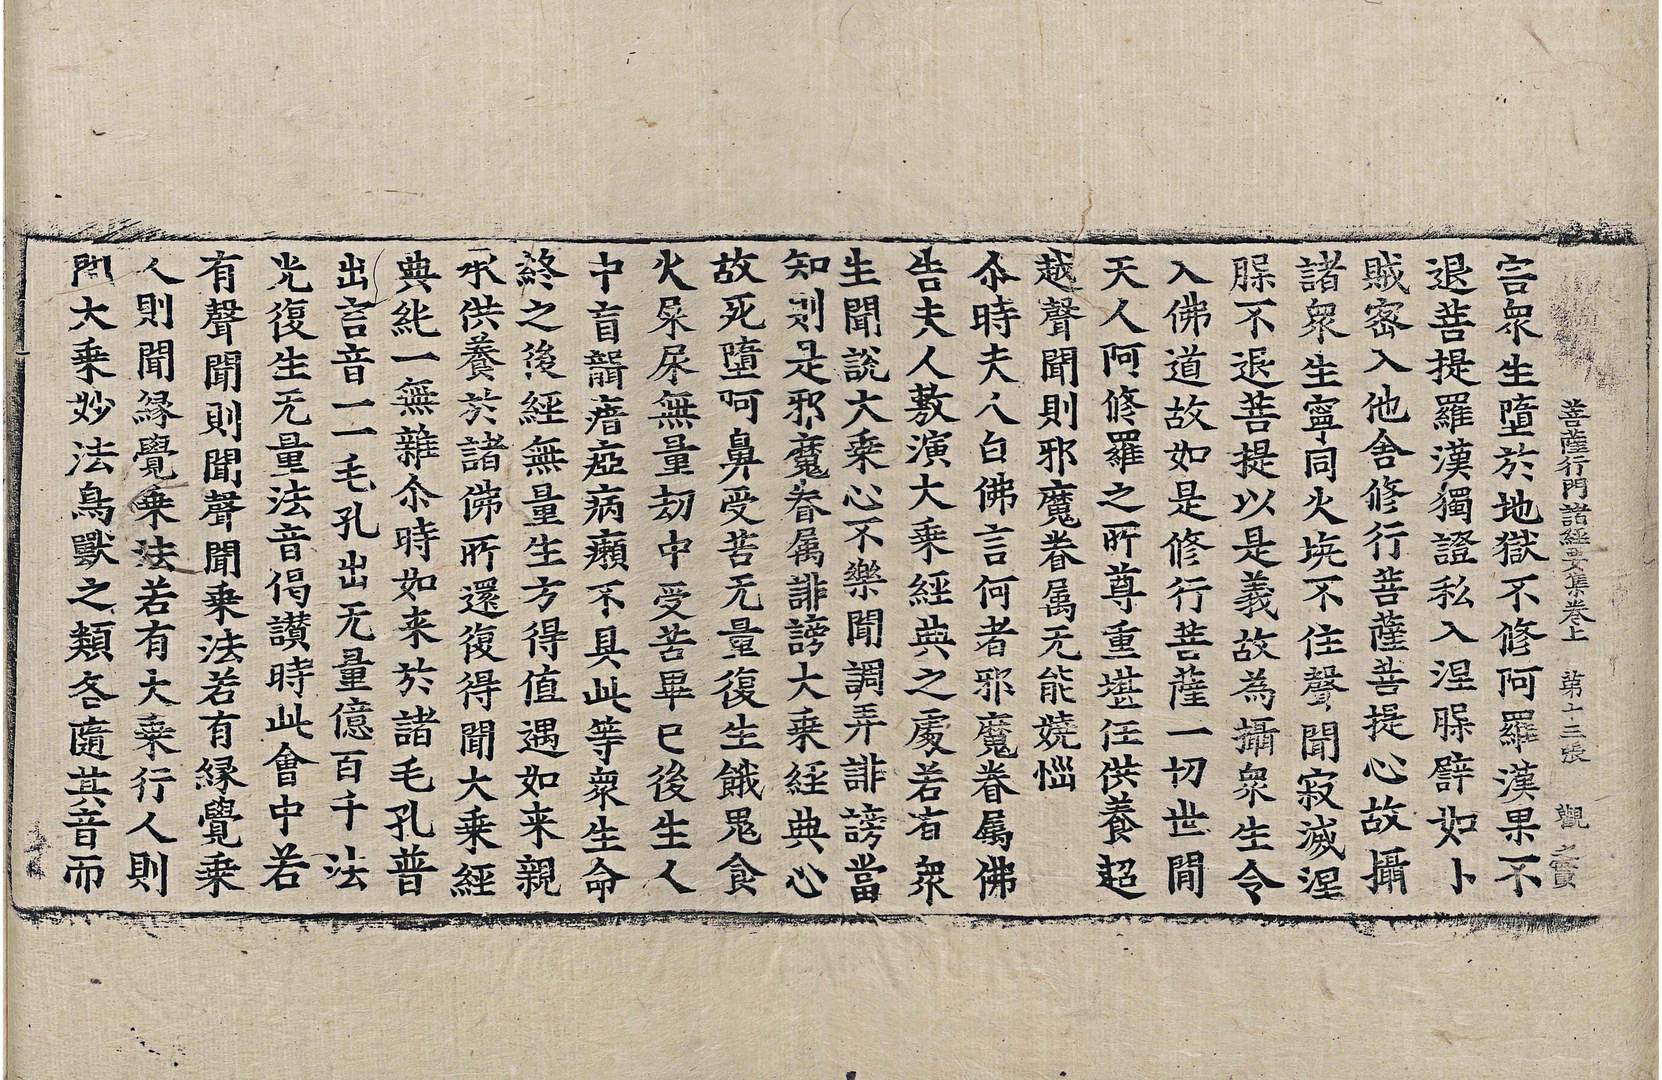 菩薩行門諸經要集卷上 第十三張 觀 之寳
害衆生墮於地獄不修阿羅漢果不
退菩提羅漢獨證私入涅槃譬如小
賊密入他舍修行菩薩菩提心故攝
諸衆生寧同火堍不住聲聞寂滅涅
槃不退菩提以是義故為攝衆生令
入佛道故如是修行菩薩一切世閒
天人阿修羅之所尊重堪任供養超
越聲聞則邪魔眷属无能嬈惱
尒時夫人白佛言何者邪魔眷属佛
告夫人敷演大乘經典之處若有衆
生聞說大乘心不樂聞調弄誹謗當
知則是邪魔眷属誹謗大乘經典心
故死墮阿鼻受苦无量復生餓鬼食
火屎尿無量劫中受苦畢已後生人
中盲聾瘖瘂病癩不具此等衆生命
終之後經無量生方得值遇如来親
承供養於諸佛所還復得聞大乘經
典純一無雜尒時如来於諸毛孔普
出言音一一毛孔出无量億百千法
光復生无量法音偈讃時此會中若
有聲聞則聞聲聞乗法若有縁覺乗
人則聞縁覺乗法若有大乗行人則
聞大乘妙法鳥獸之類各隨其音而